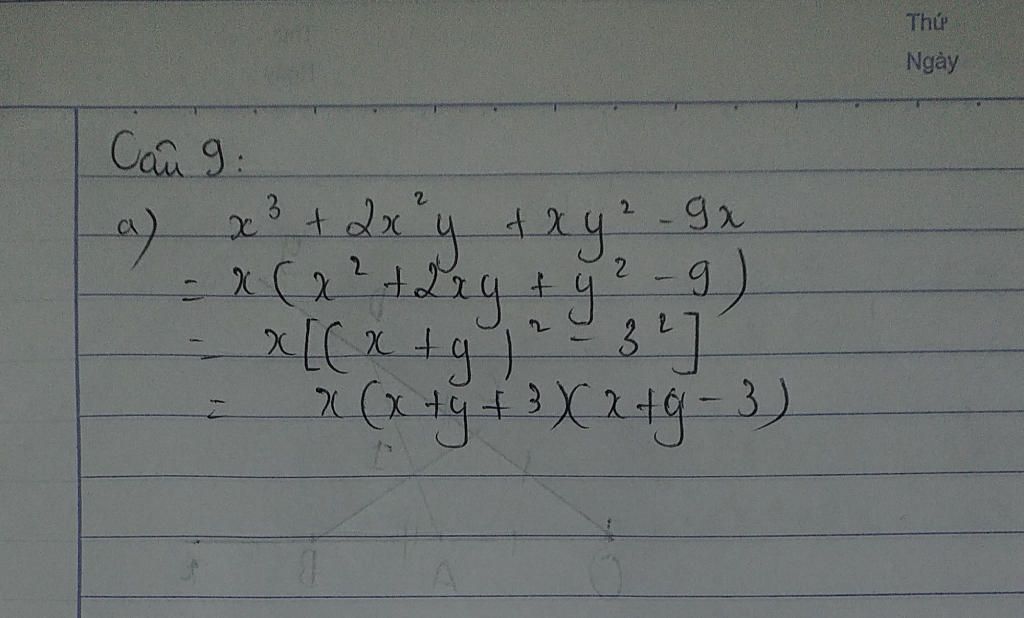 Thứ
Ngày
Câu 9:
a) x³ + 2x²y + xy² - 9x
= x(x² + 2xy + y² - 9)
= x[(x + y)² - 3²]
= x(x + y + 3)(x + y - 3)